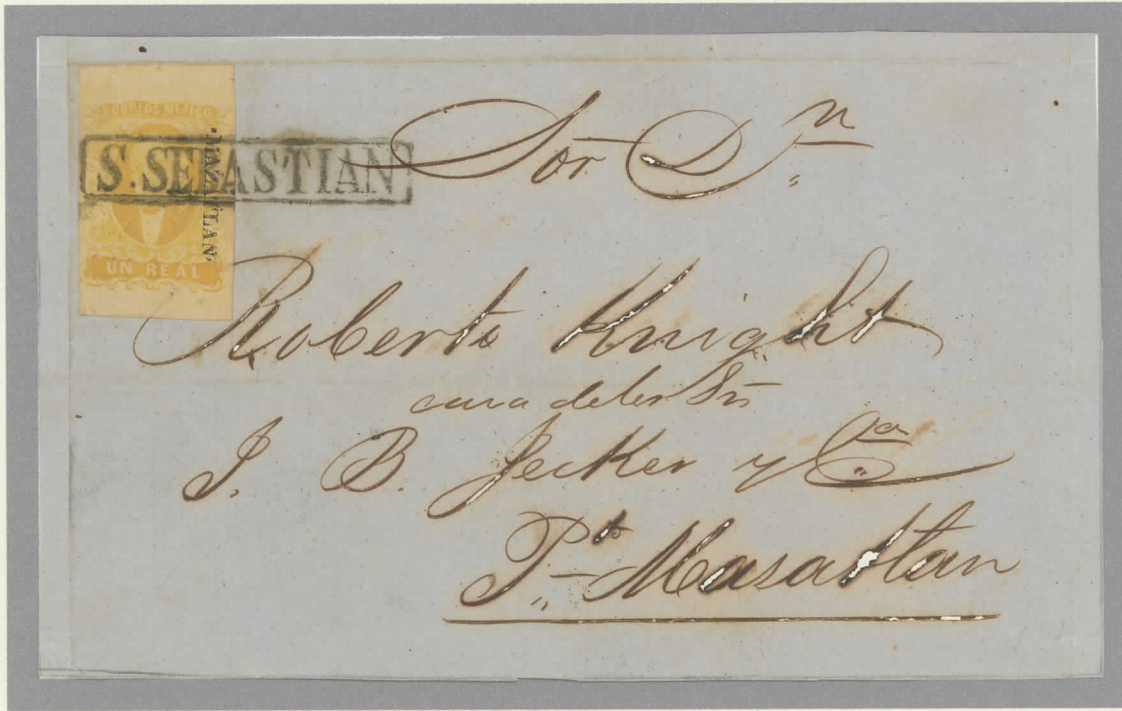 CORREOS MEJICO
MAZATLAN
S. SEBASTIAN
UN REAL
Sor Dn
Roberto Knight
casa de los Srs
J. B. Jecker y Ca
Pto Masatlan